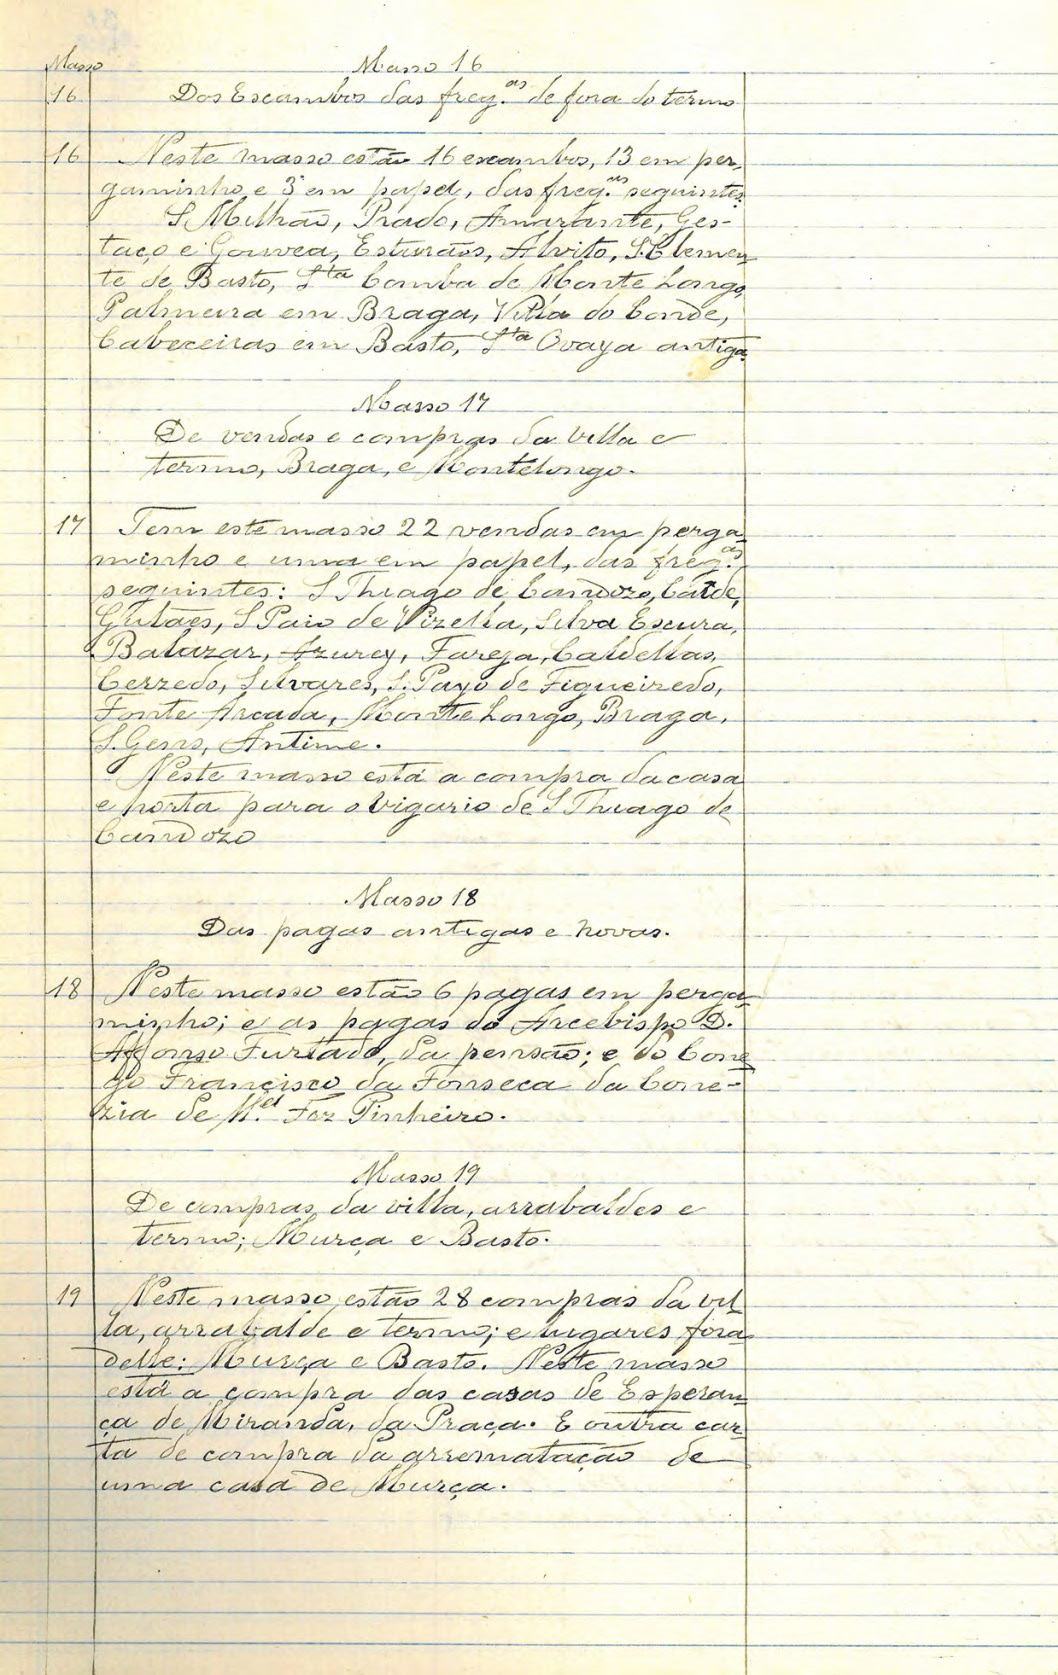 Masso
Masso 16
16
Dos Escambos das freg.as de fora do termo
16
Neste masso estão 16 escambos, 13 em per-
gaminho, e 3 em papel, das freg.as seguintes
S. Milhão, Prado, Amarante, Ges-
taço e Gouvea, Esturãos, Alvito, S. Clemen-
te de Basto, S.ta Comba de Monte Longo,
Palmeira em Braga, Villa do Conde,
Cabeceiras em Basto, S.ta Ovaya antiga.
Masso 17
De vendas e compras da villa e
termo, Braga, e Montelongo.
17
Tem este masso 22 vendas em perga-
minho e uma em papel, das freg.as
seguintes: S Thiago de Candozo, Caide,
Gulães, S Paio de Vizella, Silva Escura,
Balazar, Azurey, Fareja, Caldellas,
Cerzedo, Silvares, S. Payo de Figueiredo,
Fonte Arcada, Monte Longo, Braga,
S. Gens, Antime.
Neste masso está a compra da casa
e horta para o Vigario de S Thiago de
Candozo
Masso 18
Das pagas antigas e novas.
18
Neste masso estão 6 pagas em perga-
minho; e as pagas do Arcebispo D.
Affonso Furtado, da pensão; e do Cone-
go Francisco da Fonseca da Cone-
zia de M.el Foz Pinheiro.
Masso 19
De compras da villa, arrabaldes e
termo; Murça e Basto.
19
Neste masso estão 28 compras da vil-
la, arrabalde e termo; e lugares fora
delle: Murça e Basto. Neste masso
está a compra das casas de Esperan-
ça de Miranda, da Praça. E outra car-
ta de compra da arrematação de
uma casa de Murça.